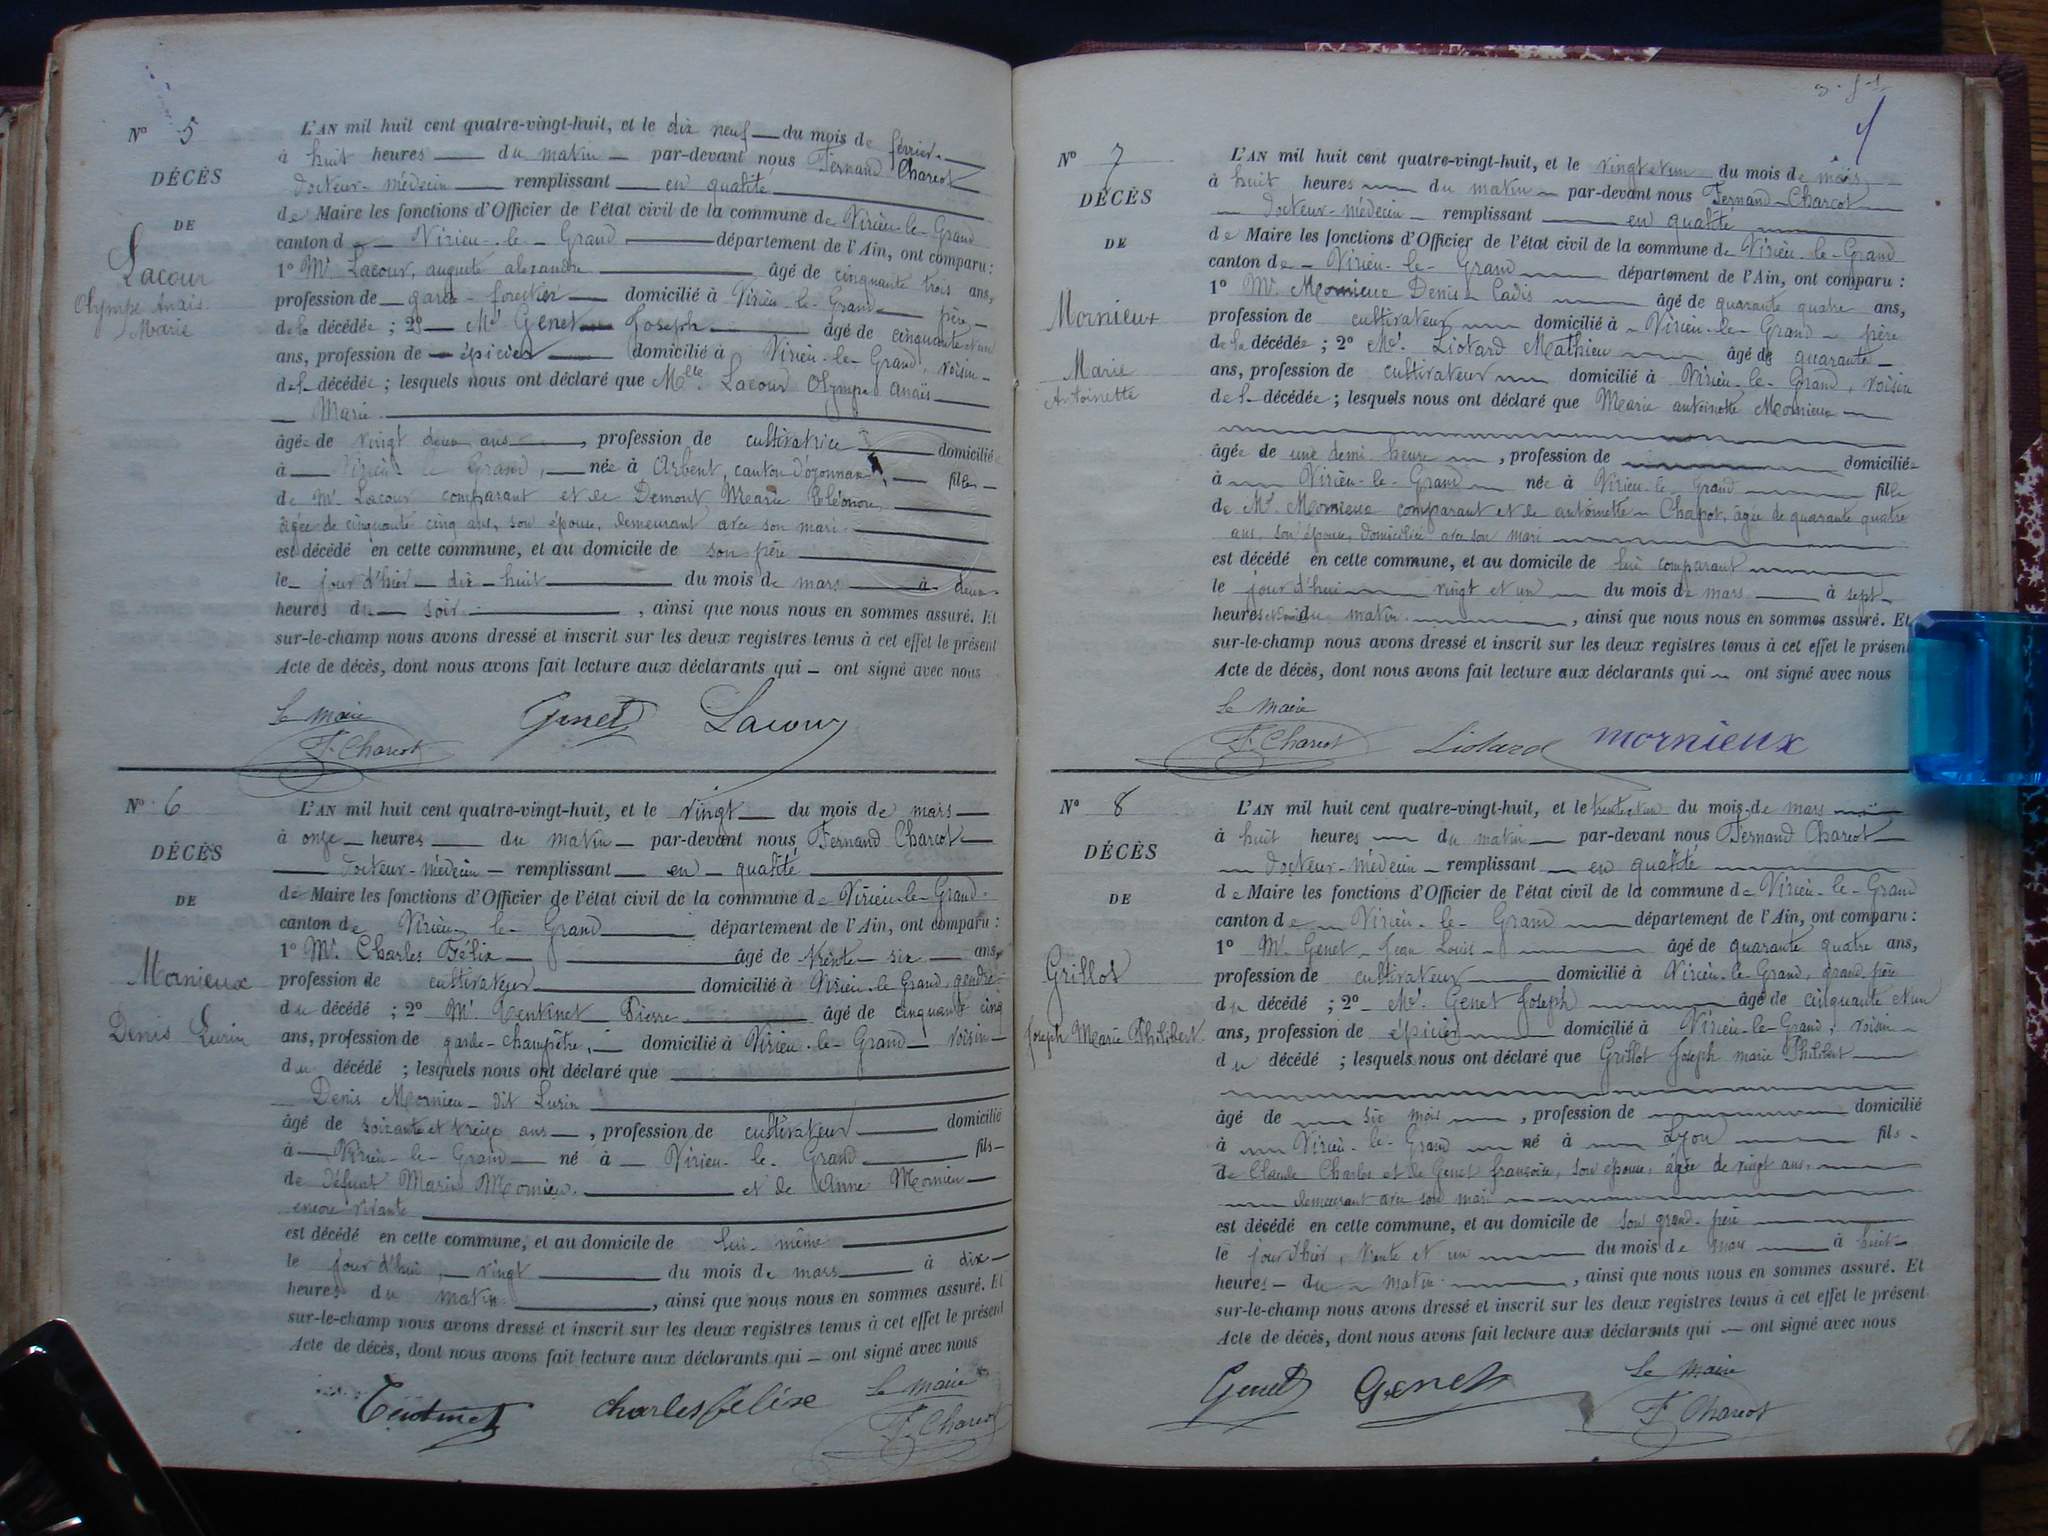 N° 5
DÉCÈS
DE
Lacour
Olympe Anaïs
Marie
L'AN mil huit cent quatre-vingt-huit, et le dix neuf du mois de février
à huit heures du matin par-devant nous Fernand Charcot
docteur-médecin remplissant en qualité
de Maire les fonctions d'Officier de l'état civil de la commune de Virieu-le-Grand
canton de Virieu-le-Grand département de l'Ain, ont comparu :
1° Mr Lacour, auguste alexandre âgé de cinquante trois ans,
profession de garde-forestier domicilié à Virieu-le-Grand père
de la décédée ; 2° Mr Genet Joseph âgé de cinquante et un
ans, profession de épicier domicilié à Virieu-le-Grand, voisin
de la décédée ; lesquels nous ont déclaré que Melle Lacour Olympe anaïs
Marie
âgée de vingt deux ans, profession de cultivatrice domiciliée
à Virieu le Grand, née à Arbent, canton d'oyonnax, fille
de Mr Lacour comparant et de Demont Marie Eléonore,
âgée de cinquante cinq ans, son épouse, demeurant avec son mari
est décédé en cette commune, et au domicile de son père
le jour d'hier dix-huit du mois de mars à deux
heures du soir, ainsi que nous nous en sommes assuré. Et
sur-le-champ nous avons dressé et inscrit sur les deux registres tenus à cet effet le présent
Acte de décès, dont nous avons fait lecture aux déclarants qui ont signé avec nous
Le Maire
F. Charcot Genet Lacour
N° 6
DÉCÈS
DE
Mornieux
Denis Lurin
L'AN mil huit cent quatre-vingt-huit, et le vingt du mois de mars
à onze heures du matin par-devant nous Fernand Charcot
docteur-médecin remplissant en qualité
de Maire les fonctions d'Officier de l'état civil de la commune de Virieu-le-Grand
canton de Virieu le Grand département de l'Ain, ont comparu :
1° Mr Charles Félix âgé de trente-six ans,
profession de cultivateur domicilié à Virieu-le Grand, gendre
du décédé ; 2° Mr Tentinet Pierre âgé de cinquante cinq
ans, profession de garde-champêtre, domicilié à Virieu-le-Grand voisin
du décédé ; lesquels nous ont déclaré que
Denis Mornieu dit Lurin
âgé de soixante et treize ans, profession de cultivateur domicilié
à Virieu-le-Grand né à Virieu-le-Grand fils
de défunt Marin Mornieu et de Anne Mornieu
encore vivante
est décédé en cette commune, et au domicile de lui-même
le jour d'hui, vingt du mois de mars à dix
heures du matin, ainsi que nous nous en sommes assuré. Et
sur-le-champ nous avons dressé et inscrit sur les deux registres tenus à cet effet le présent
Acte de décès, dont nous avons fait lecture aux déclarants qui ont signé avec nous
Tentinet charles félixe Le Maire
F. Charcot
4
N° 7
DÉCÈS
DE
Mornieux
Marie
Antoinette
L'AN mil huit cent quatre-vingt-huit, et le vingt et un du mois de mars
à huit heures du matin par-devant nous Fernand Charcot
docteur-médecin remplissant en qualité
de Maire les fonctions d'Officier de l'état civil de la commune de Virieu-le-Grand
canton de Virieu-le-Grand département de l'Ain, ont comparu :
1° Mr Mornieux Denis Cadis âgé de quarante quatre ans,
profession de cultivateur domicilié à Virieu-le-Grand père
de la décédée ; 2° Mr. Liotard Mathieu âgé de quarante
ans, profession de cultivateur domicilié à Virieu-le-Grand, voisin
de la décédée ; lesquels nous ont déclaré que Marie antoinette Mornieux
âgée de une demi heure, profession de domiciliée
à Virieu-le-Grand née à Virieu-le Grand fille
de Mr. Mornieux comparant et de antoinette Chapot, âgée de quarante quatre
ans, son épouse, domiciliée avec son mari
est décédé en cette commune, et au domicile de lui comparant
le jour d'hui vingt et un du mois de mars à sept
heures et demi du matin, ainsi que nous nous en sommes assuré. Et
sur-le-champ nous avons dressé et inscrit sur les deux registres tenus à cet effet le présent
Acte de décès, dont nous avons fait lecture aux déclarants qui ont signé avec nous
Le Maire
F. Charcot Liotard mornieux
N° 8
DÉCÈS
DE
Grillot
Joseph Marie Philibert
L'AN mil huit cent quatre-vingt-huit, et le trente et un du mois de mars
à huit heures du matin par-devant nous Fernand Charcot
docteur-médecin remplissant en qualité
de Maire les fonctions d'Officier de l'état civil de la commune de Virieu-le-Grand
canton de Virieu-le-Grand département de l'Ain, ont comparu :
1° Mr. Genet Jean Louis âgé de quarante quatre ans,
profession de cultivateur domicilié à Virieu-le-Grand, grand père
du décédé ; 2° Mr. Genet Joseph âgé de cinquante et un
ans, profession de épicier domicilié à Virieu-le-Grand, voisin
du décédé ; lesquels nous ont déclaré que Grillot Joseph marie Philibert
âgé de six mois, profession de domicilié
à Virieu-le-Grand né à Lyon fils
de Claude Charles et de Genet françoise, son épouse, âgée de vingt ans,
demeurant avec son mari
est décédé en cette commune, et au domicile de son grand-père
le jour d'hier, trente et un du mois de mars à huit
heures du matin, ainsi que nous nous en sommes assuré. Et
sur-le-champ nous avons dressé et inscrit sur les deux registres tenus à cet effet le présent
Acte de décès, dont nous avons fait lecture aux déclarants qui ont signé avec nous
Genet Genet Le Maire
F. Charcot